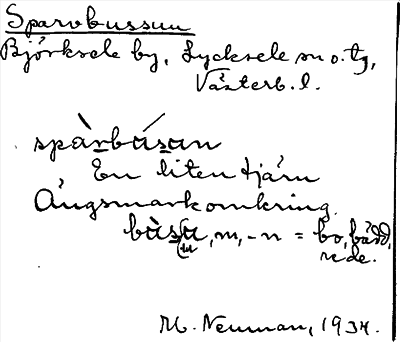 Sparvbussun
Björksele by, Lycksele sn o. tg,
Västerb. l.
spàrbúsun
En liten tjärn
Ängsmark omkring.
bùsu, m, -n = bo, bädd,
rede.
M. Neuman, 1934.